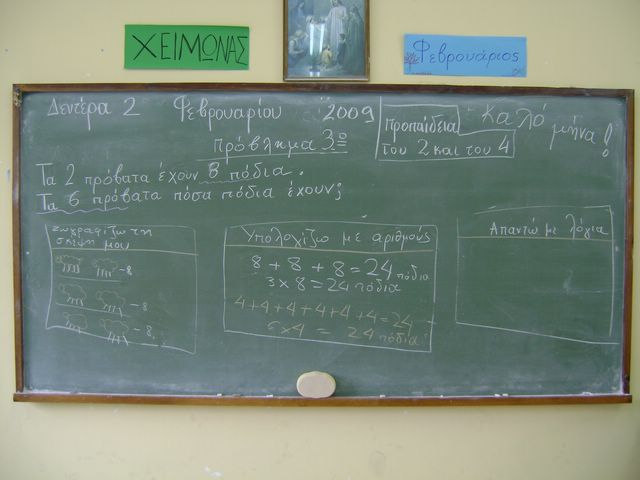 ΧΕΙΜΩΝΑΣ
Φεβρουάριος
Δευτέρα 2 Φεβρουαρίου 2009
Πρόβλημα 3ο
Προπαίδεια
του 2 και του 4
Καλό
μήνα!
Τα 2 πρόβατα έχουν 8 πόδια.
Τα 6 πρόβατα πόσα πόδια έχουν;
Ζωγραφίζω τη
σκέψη μου
-8
-8
-8
Υπολογίζω με αριθμούς
8 + 8 + 8 = 24 πόδια
3 x 8 = 24 πόδια
4+4+4+4+4+4=24
6x4 = 24 πόδια
Απαντώ με λόγια